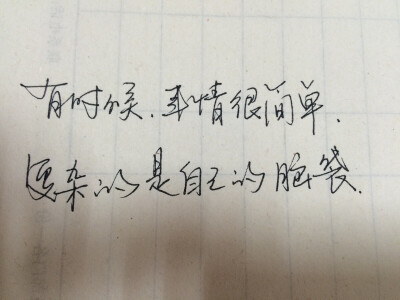 有时候.事情很简单.
复杂的是自己的脑袋.